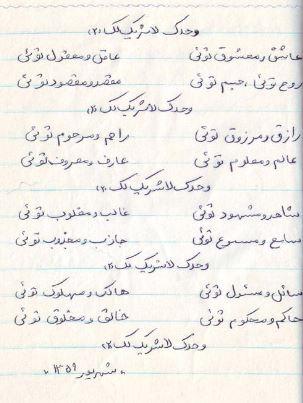 وحدک لاشریک لک (۲)
عاشق و معشوق توئی عاقل و معقول توئی
روح توئی، جسم توئی مقصد و مقصود توئی
وحدک لاشریک لک (۲)
رازق و مرزوق توئی راحم و مرحوم توئی
عالم و معلوم توئی عارف و معروف توئی
وحدک لاشریک لک (۲)
شاهد و مشهود توئی غالب و مغلوب توئی
سامع و مسموع توئی جاذب و مجذوب توئی
وحدک لاشریک لک (۲)
سائل و مسئول توئی هالک و مهلوک توئی
حاکم و محکوم توئی خالق و مخلوق توئی
وحدک لاشریک لک (۲)
شهریور ۱۳۵۹